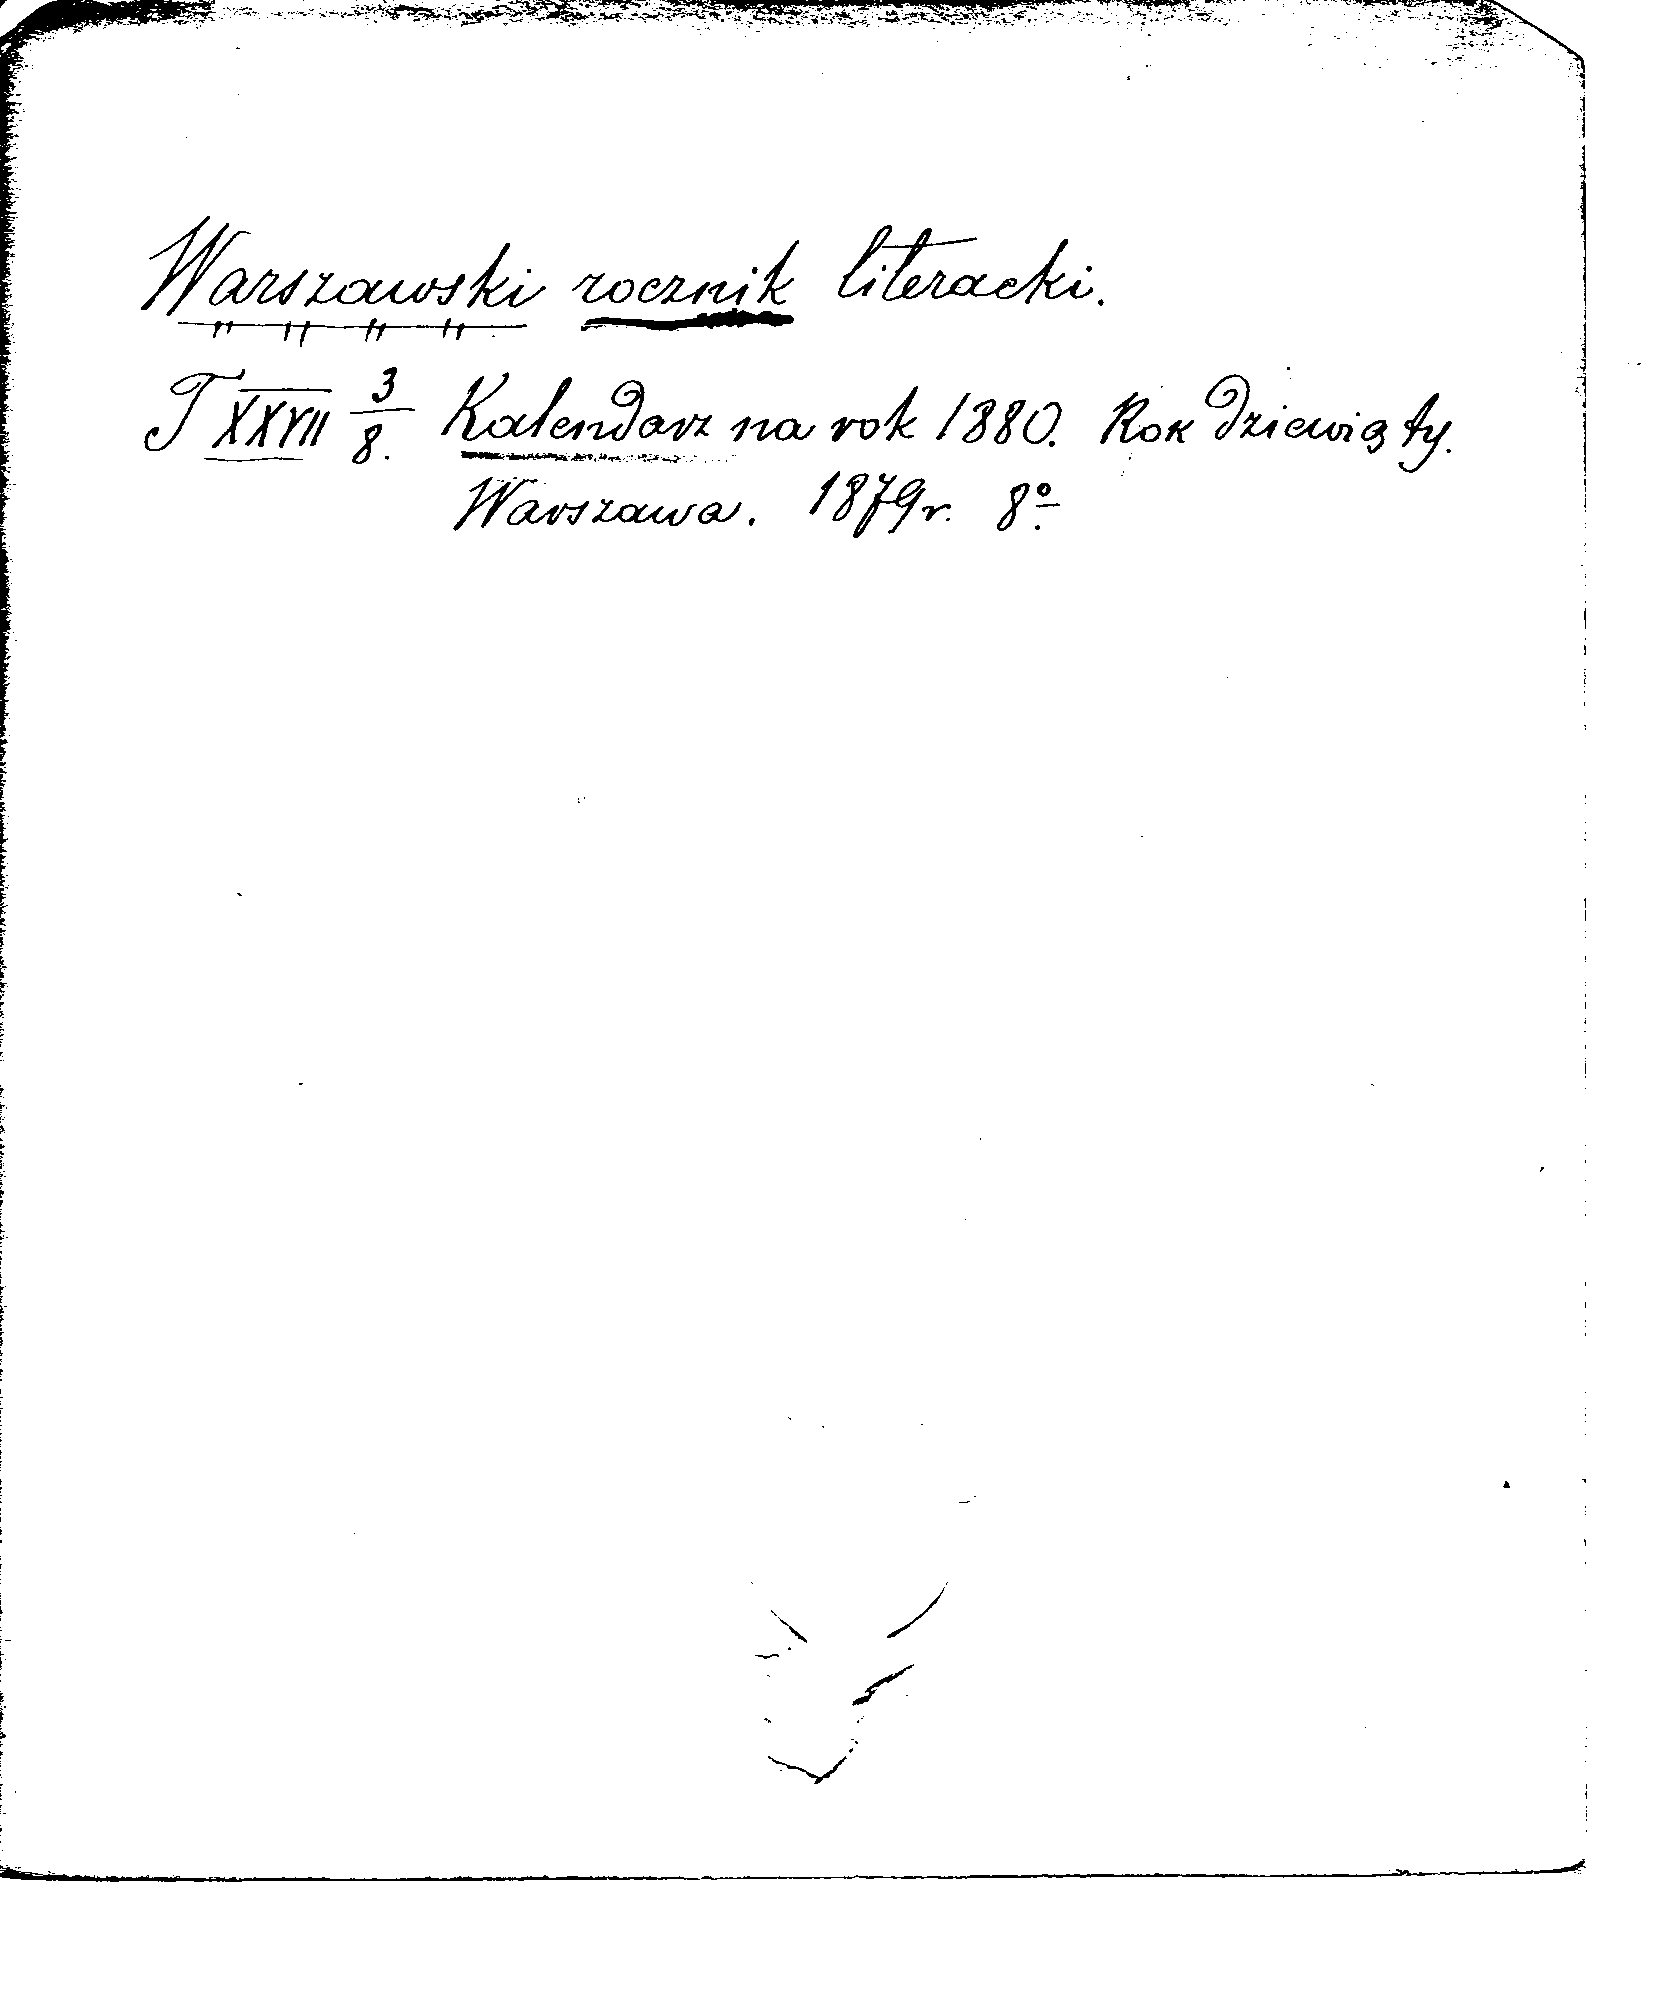 Warszawski rocznik literacki.
T XXVII 3/8. Kalendarz na rok 1880. Rok dziewiąty.
Warszawa. 1879 r. 8º